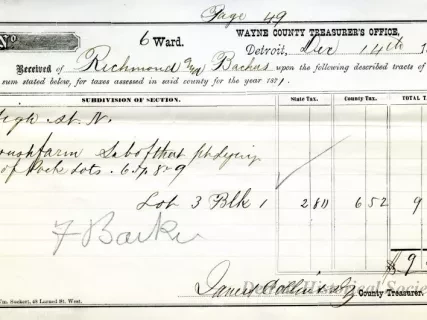 Page 49
No
6 Ward.
WAYNE COUNTY TREASURER'S OFFICE,
Detroit, Dec 14th
Received of Richmond & Backus upon the following described tracts of
sum stated below, for taxes assessed in said county for the year 1871.
SUBDIVISION OF SECTION. State Tax. County Tax. TOTAL
High St. N.
farm Sub of that pt lying
of Park Lots. 65 p 8 & 9
Lot 3 Blk 1 2 80 6 52 9
F Barker
$ 9
County Treasurer.
Wm. Seeker, 49 Larned St. West.
Detroit Historical Society